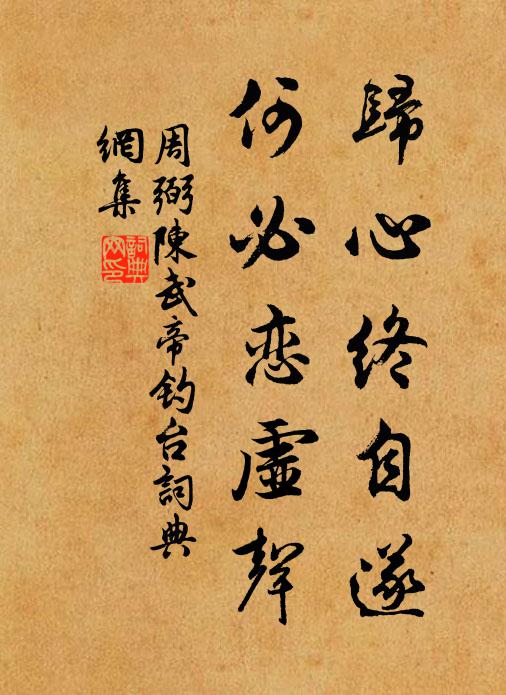 歸心終自遂
何必恋虛聲
周弼陳武帝釣台詞典
網集
詞典網印